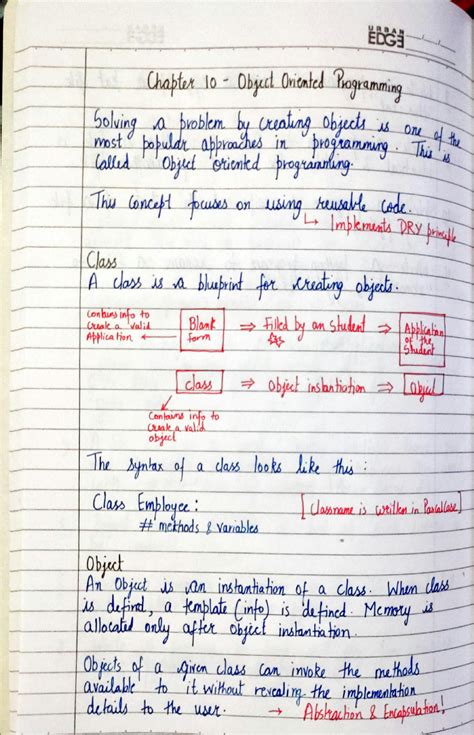 URBAN
EDGE
Chapter 10 - Object Oriented Programming
Solving a problem by creating objects is one of the
most popular approaches in programming. This is
called Object oriented programming.
This concept focuses on using reusable code.
↳ Implements DRY principle
Class
A class is a blueprint for creating objects.
Contains info to
create a valid
Application ←
Blank
form
⇒ Filled by an Student ⇒
Application
of the
Student
class ⇒ Object instantiation ⇒ Object
Contains info to
create a valid
object
The syntax of a class looks like this :
Class Employee :
[Classname is written in PascalCase]
# methods & variables
Object
An Object is an instantiation of a class. When class
is defined, a template (info) is defined. Memory is
allocated only after object instantiation.
Objects of a given class can invoke the methods
available to it without revealing the implementation
details to the user. → Abstraction & Encapsulation!